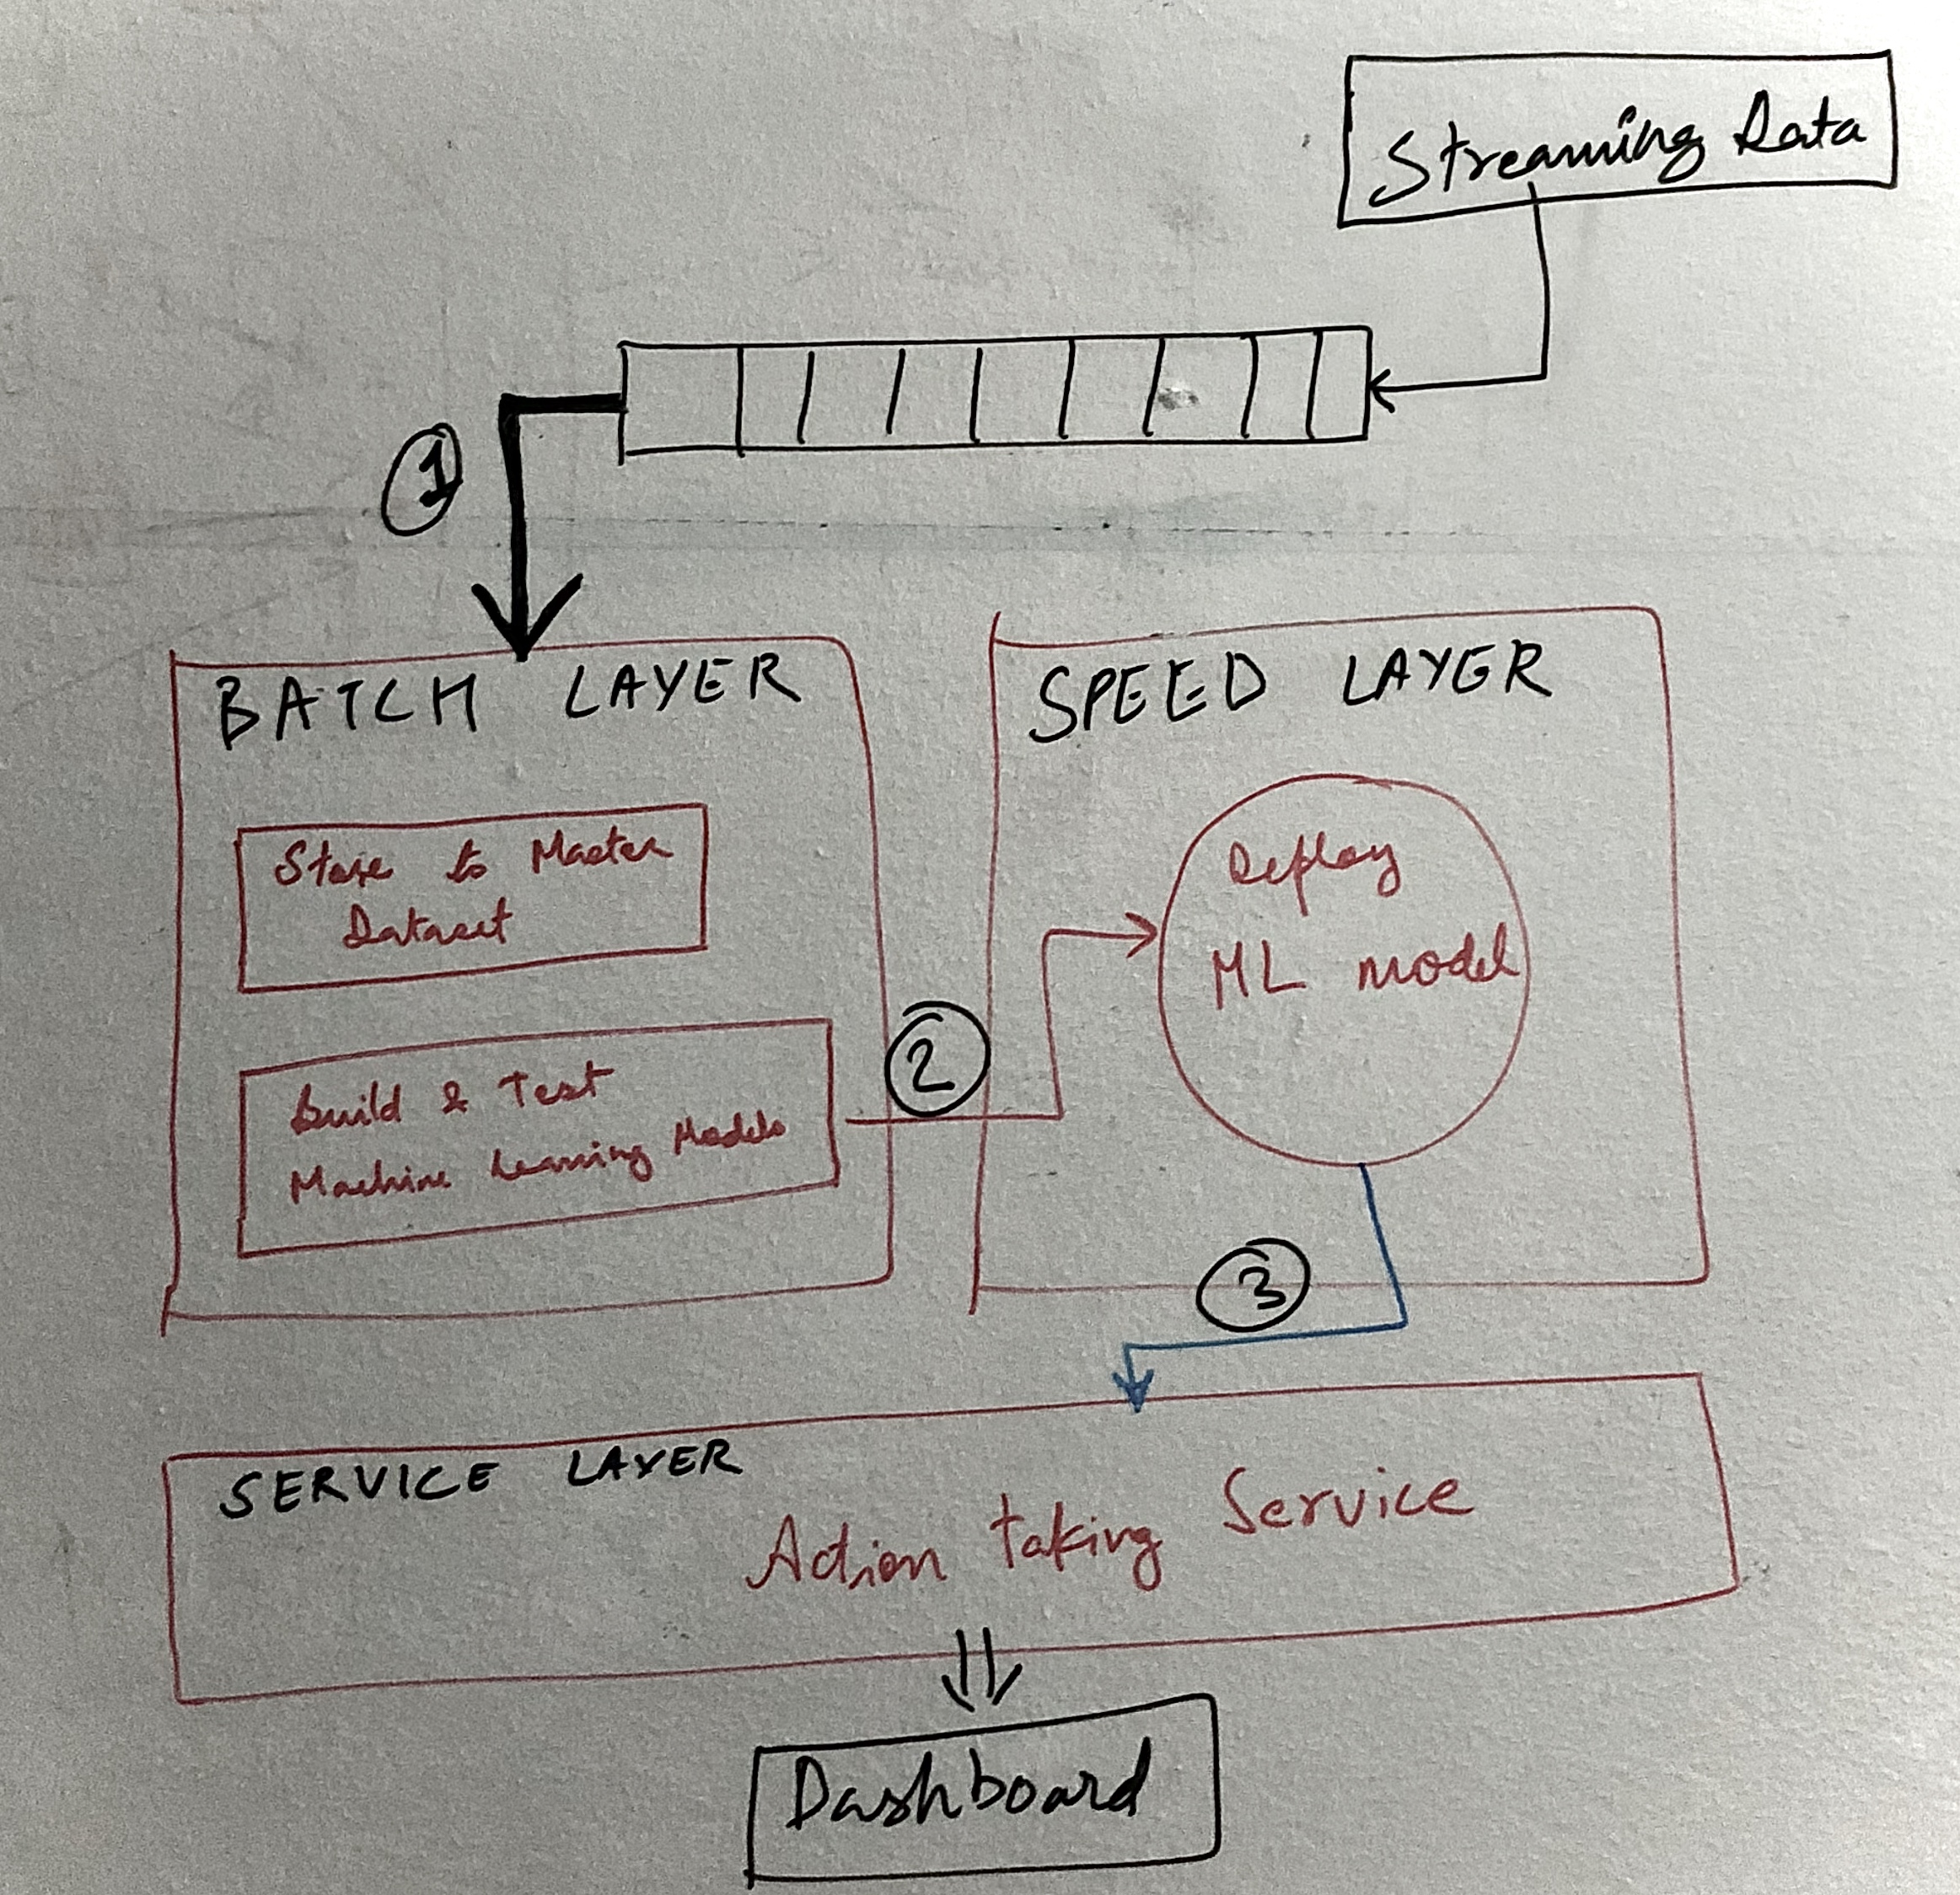 Streaming Data
1
BATCH LAYER
Store to Master
Dataset
Build & Test
Machine Learning Models
2
SPEED LAYER
Deploy
ML model
3
SERVICE LAYER
Action taking Service
Dashboard